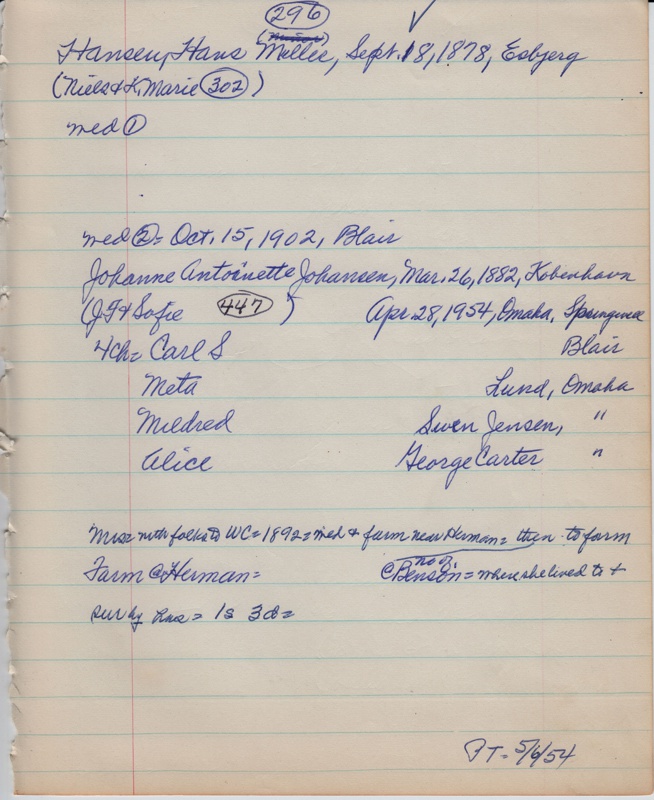 296
Hansen, Hans Møller, Sept. 18, 1878, Esbjerg
(Niels & K, Marie 302)
med ①

med ② = Oct. 15, 1902, Blair
Johanne Antoinette Johansen, Mar. 26, 1882, Kobenhavn
(J.F & Sofie 447) Apr 28, 1954, Omaha, Springwell
4ch = Carl S Blair
Meta Lund, Omaha
Mildred Swen Jensen, "
Alice George Carter "
Mrs = with folks to WC = 1892 = med & farm near Herman = then to farm
no of
Farm @ Herman = @ Benson = where she lived to +
sur by hus = 1s 3d =
PT = 5/6/54